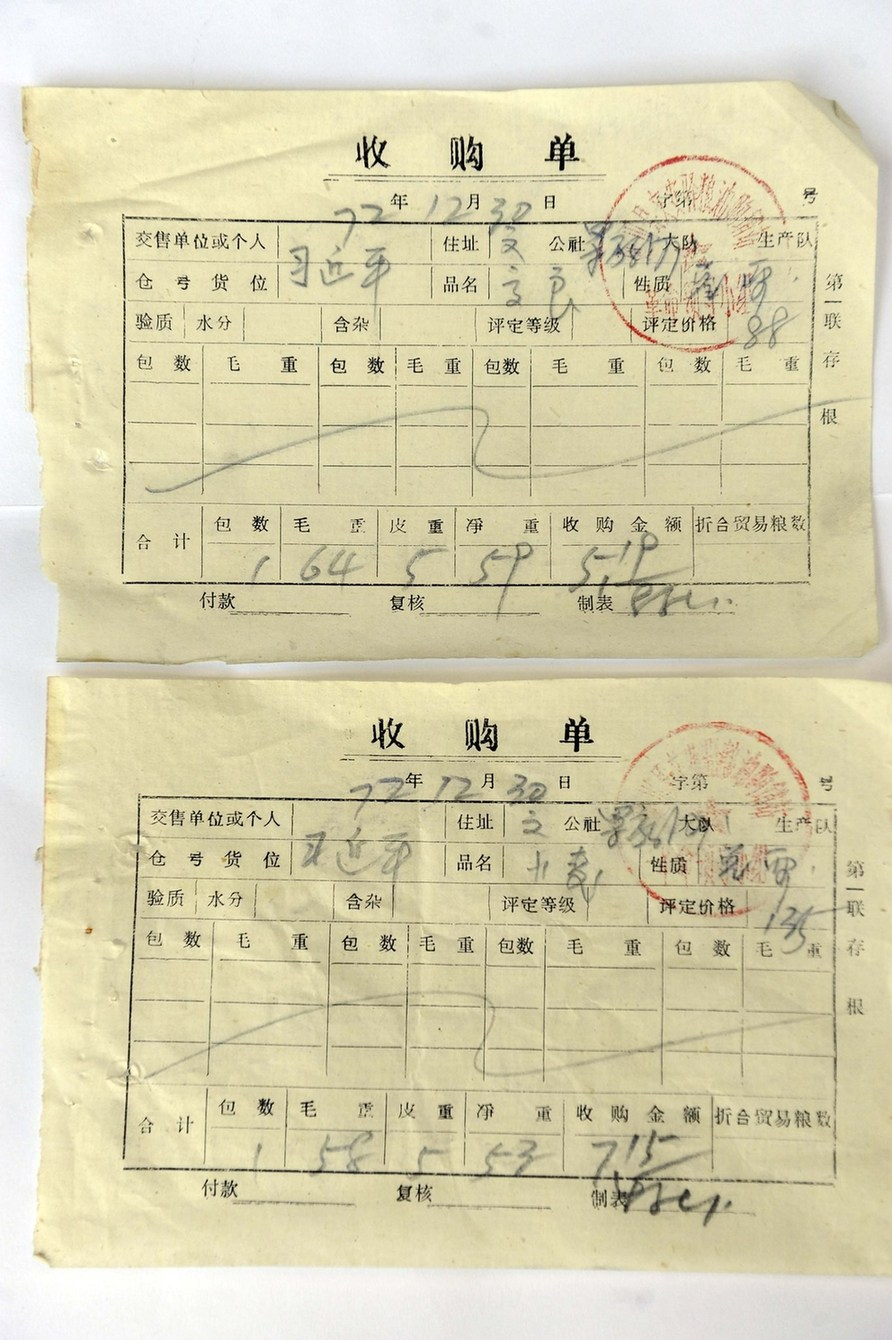 收购单
72年12月30日 字第 号
交售单位或个人 习近平 住址 文 公社 大队 生产队
仓号货位 品名 性质
验质 水分 含杂 评定等级 评定价格 88
包数 毛重 包数 毛重 包数 毛重 包数 毛重
合计 包数 毛重 皮重 净重 收购金额 折合贸易粮数
1 64 5 59 5.19
付款 复核 制表
第一联存根
收购单
72年12月30日 字第 号
交售单位或个人 习近平 住址 文 公社 大队 生产队
仓号货位 品名 小麦 性质
验质 水分 含杂 评定等级 评定价格 135
包数 毛重 包数 毛重 包数 毛重 包数 毛重
合计 包数 毛重 皮重 净重 收购金额 折合贸易粮数
1 58 5 53 7.15
付款 复核 制表
第一联存根